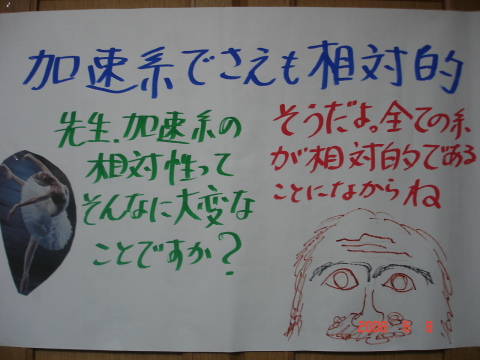 加速系でさえも相対的
先生、加速系の
相対性って
そんなに大変な
ことですか?
そうだよ。全ての系
が相対的である
ことになからね